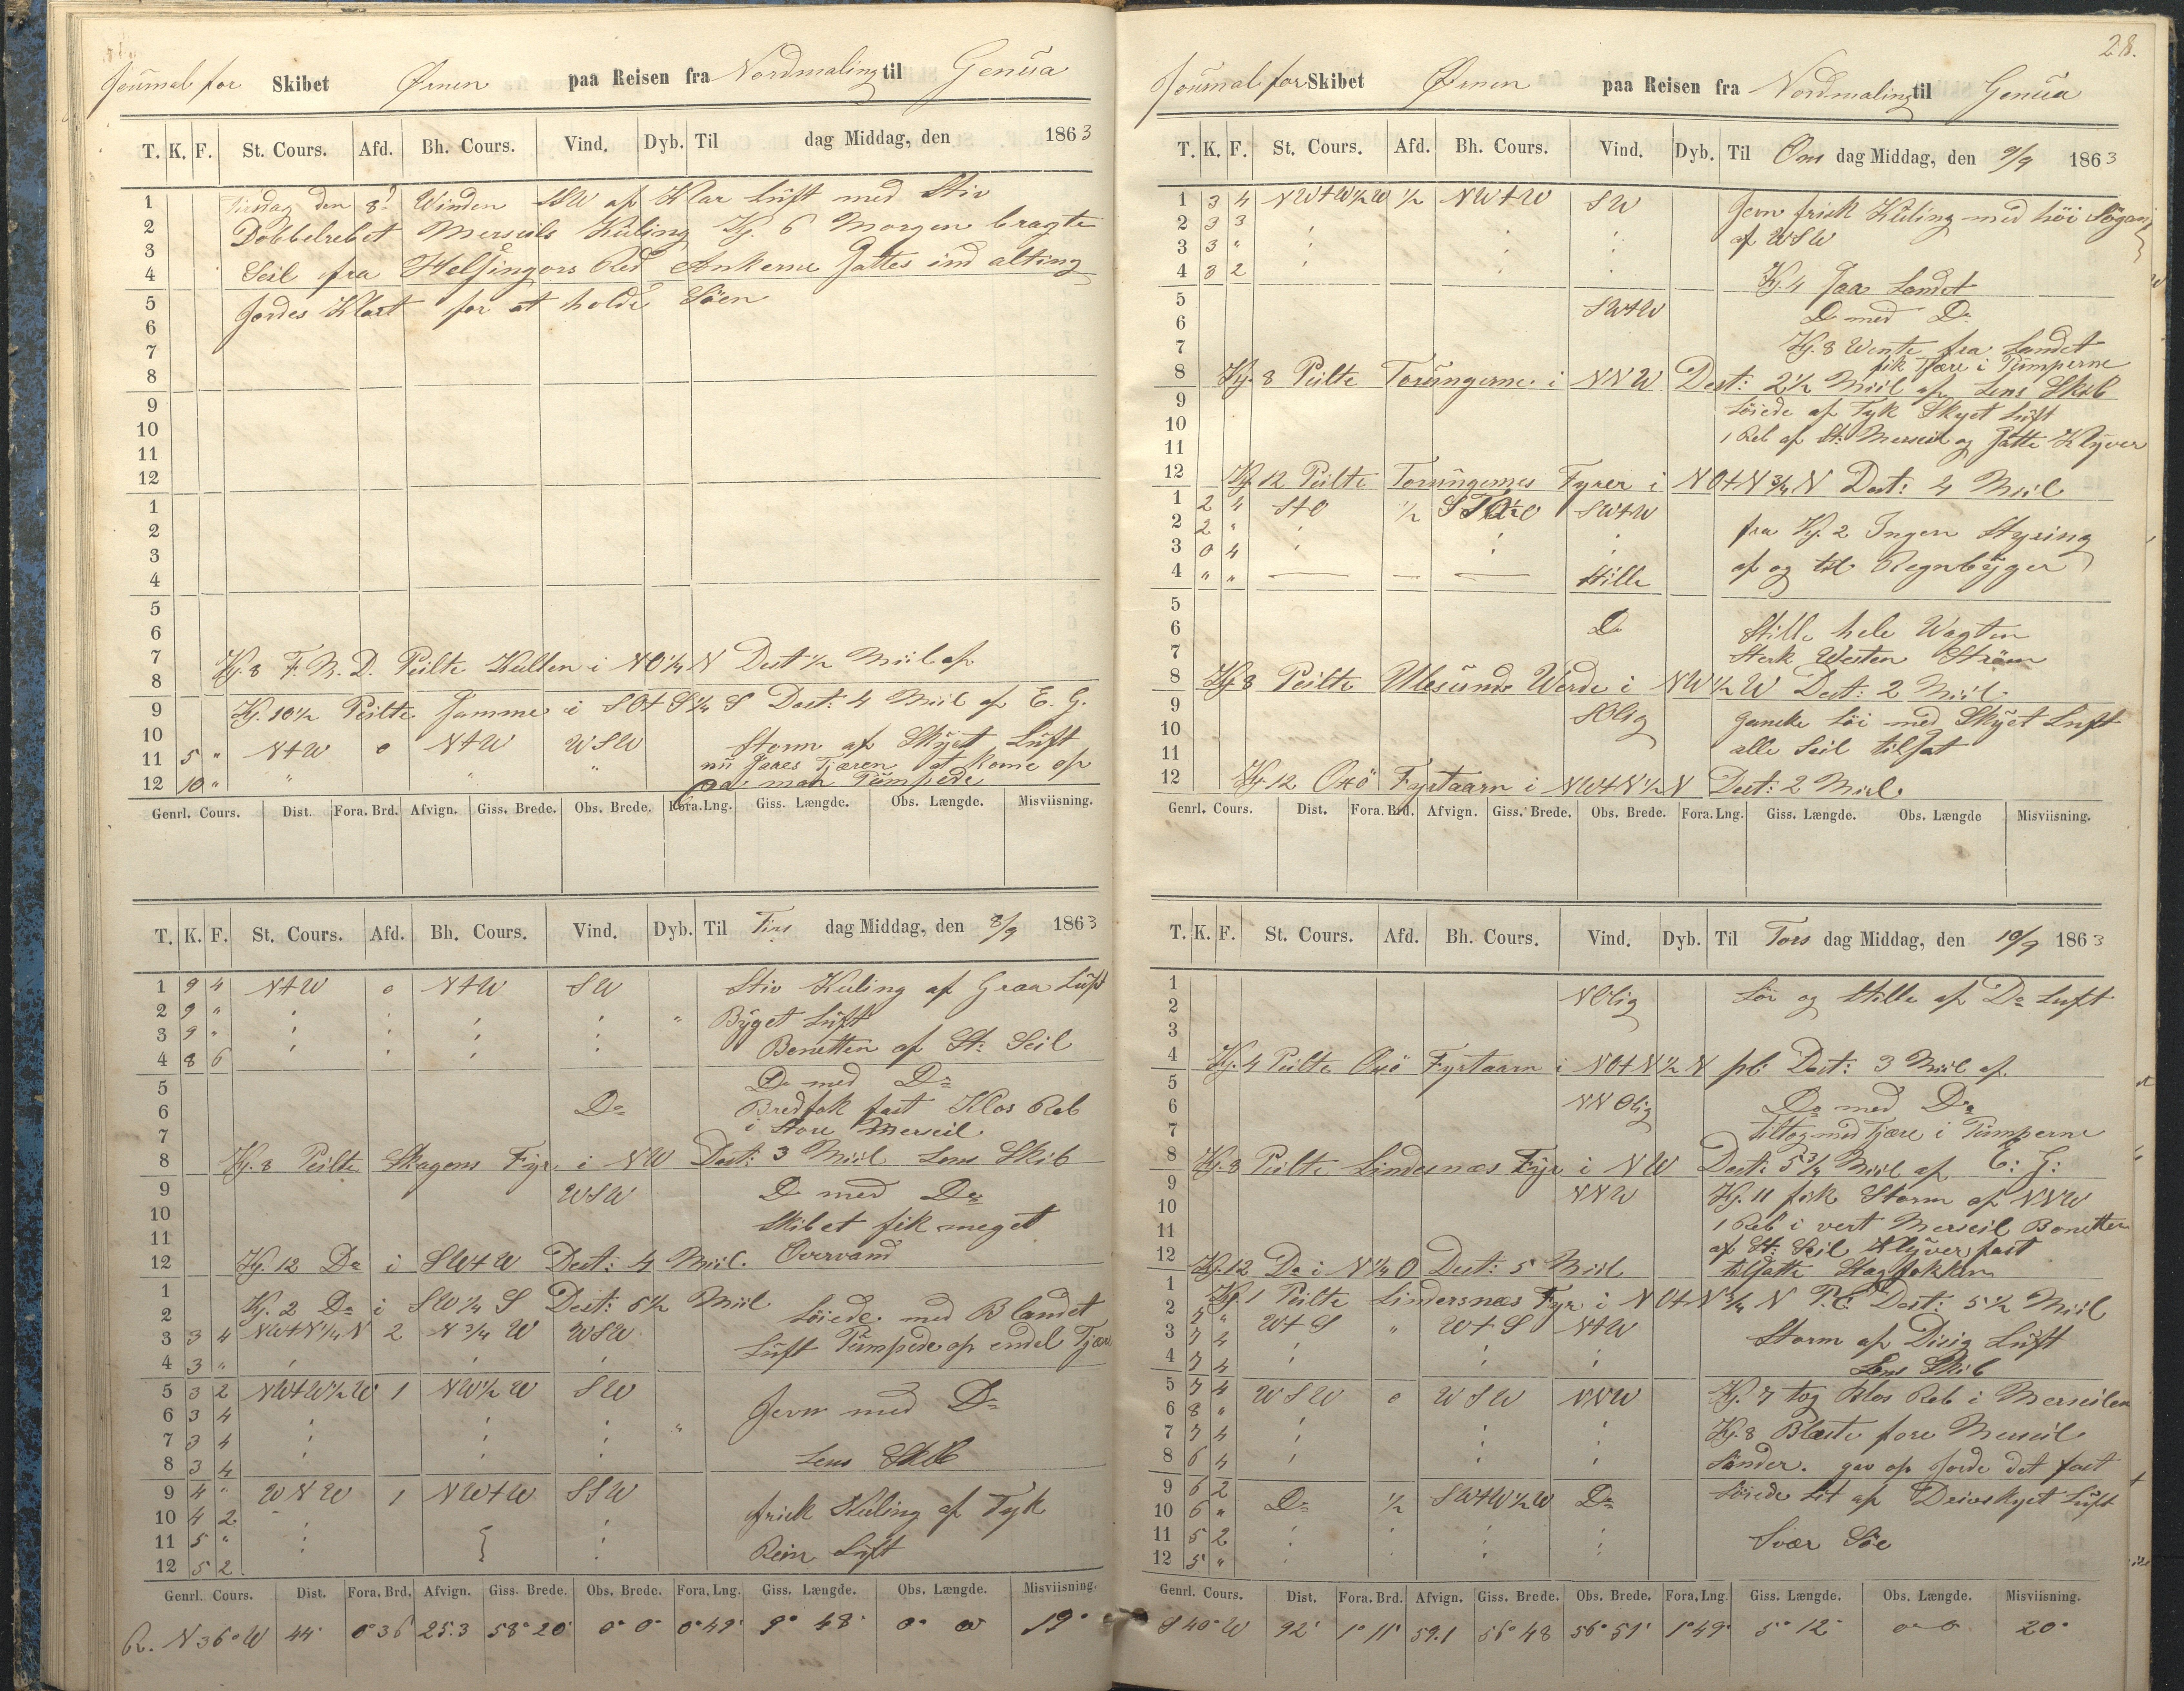 Journal for Skibet Ørnen paa Reisen fra Nordmaling til Genüa
T. K. F. St. Cours. Afd. Bh. Cours. Vind. Dyb. Til dag Middag, den 1863
1 Tirsdag den 8 Winden SSW af Klar Lüft med Stiv
2 Dobbelrebet Merseils Küling Kj. 6 Morgen bragte
3 Seil fra Helsingørs Red Ankerne Sattes ind alting
4
5 Jordes Klart for at holde Söen
6
7
8
9
10
11
12
1
2
3
4
5
6
7 Kj. 8 F. M. D. Peilte Kullen i NO 1/4 N Dest 1/2 Miil af
8
9 Kj. 10 1/2 Peilte i SO+S 1/4 S Dest: 4 Miil af E. G.
10 N+W 0 N+W WSW Storm af Skyet Lüft
11 5 " nü Tjæren at kome op
12 10 " " " " man Pümpede
Genrl. Cours. Dist. Fora. Brd. Afvign. Giss. Brede. Obs. Brede. Fora. Lng. Giss. Længde. Obs. Længde. Misviisning.
T. K. F. St. Cours. Afd. Bh. Cours. Vind. Dyb. Til Tirs dag Middag, den 8/9 1863
1 9 4 N+W 0 N+W SW Stiv Kuling af Graa Lüft
2 9 " " Byget Lüft
3 9 "
4 8 6 Bonetten af St: Seil
5 Do med Do
6 Do Bredfok fast Klos Reb
7 i Store Merseil
8 Kj. 8 Peilte Skagens Fyr i NW Dest: 3 Miil Lens Skib
9 WSW Do med Do
10 Skibet fik meget
11 Overvand
12 Kj. 12 Do i SW+W Dest: 4 Miil.
1 Kj. 2 Do i SW 1/4 S Dest: 6 1/2 Miil
2 Löiede med Blandet
3 3 4 NW+N 1/4 N 2 N 3/4 W WSW Lüft Pümpede op endel Tjære
4 3 "
5 3 2 NW+W 1/2 W 1 NW 1/2 W SW Jevn med Do
6 3 4
7 3 4 "
8 3 4 Lens Skib
9 4 " WNW 1 NW+W SSW frisk Küling af Tyk
10 4 2
11 5 " Lüft
12 5 2
Genrl. Cours. Dist. Fora. Brd. Afvign. Giss. Brede. Obs. Brede. Fora. Lng. Giss. Længde. Obs. Længde. Misviisning.
R. N 36° W 44' 0° 36 25.3 58° 20' 0° 0' 0° 49' 9° 48' 0° 0 19°
28.
Journal for Skibet Ørnen paa Reisen fra Nordmaling til Genüa
T. K. F. St. Cours. Afd. Bh. Cours. Vind. Dyb. Til Ons dag Middag, den 9/9 1863
1 3 4 NW+W 1/2 W 1/2 NW+W SW Jevn frisk Küling med höi Sögang
2 3 3 af WSW
3 3 "
4 3 2 Kj. 4 Saa Landet
5 SW+W Do med Do
6
7 Kj. 8 Wente fra Landet
fik Tjære i Pümperne
8 Kj. 8 Peilte Torüngerne i NNW Dest: 2 1/2 Miil af Lens Skib
9 Löiede af Tyk Skyet Lüft
10 1 Reb af St: Merseil og Satte Klyver
11
12 Kj. 12 Peilte Torüngernes Fyrer i NO+N 3/4 N Dest: 4 Miil
1 2 4 S+O 1/2 SW+W
2 2 " fra Kj. 2 Ingen Styring
3 0 4 af og til Regnbyger
4 " " Stille
5
6 Do Stille hele Wagten
7 Sterk Westen Ström
8 Kj. 8 Peilte Ulesünds Werde i NW 1/2 W Dest: 2 Miil
9 SOlig Ganske Löi med Skyet Luft
10 alle Seil tilsat
11
12 Kj. 12 Oxö Fyrtaarn i NW+N 1/2 N Dest: 2 Miil.
Genrl. Cours. Dist. Fora. Brd. Afvign. Giss. Brede. Obs. Brede. Fora. Lng. Giss. Længde. Obs. Længde Misviisning.
T. K. F. St. Cours. Afd. Bh. Cours. Vind. Dyb. Til Tors dag Middag, den 10/9 1863
1 NOlig Löi og Stille af Do Luft
2
3
4 Kj. 4 Peilte Oxö Fyrtaarn i NO+N 1/2 N pb: Dest: 3 Miil af
5
6 NNOlig Do med Do
7 tiltog med Tjære i Pümperne
8 Kj. 8 Peilte Lindesnæs Fyr i NW Dest: 5 3/4 Miil af E: G:
9 NNW Kj. 11 fik Storm af NNW
10 1 Reb i vert Merseil Bonetten
11 af St: Seil Klyver fast
12 Kj. 12 Do i N 1/4 O Dest: 5 Miil tilsatte Stagfokken
1 Kj. 1 Peilte Lindersnæs Fyr i NO+N 3/4 N P.C: Dest: 5 1/2 Miil
2 7 " W+S " W+S N+W Storm af Disig Lüft
3 7 4
4 7 4 Lens Skib
5 7 4 WSW 0 WSW NNW Kj. 7 tog Klos Reb i Merseilen
6 8 " Kj. 8 Blæste fore Merseil
7 7 4
8 6 4 Sönder. gav op Jorde det fast
9 6 2 Do 1/2 SW+W 1/2 W Do Löiede Lit af Drivskyet Lüft
10 6 "
11 5 2 Svær Söe
12 5 "
Genrl. Cours. Dist. Fora. Brd. Afvign. Giss. Brede. Obs. Brede. Fora. Lng. Giss. Længde. Obs. Længde. Misviisning.
S 40° W 92' 1° 11' 59.1 56° 48 56° 51' 1° 49' 5° 12' 0° 0 20°